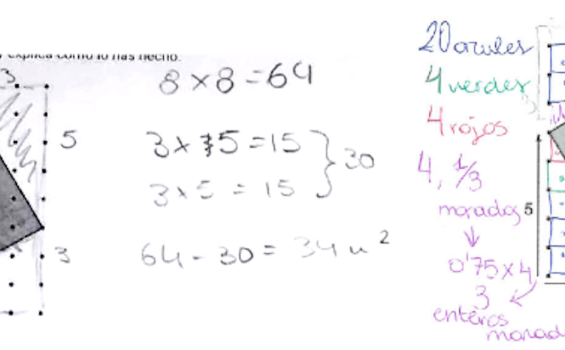 explica como lo has hecho.
3
8 x 8 = 64
5
3 x 5 = 15
3 x 5 = 15
30
3
64 - 30 = 34 u²
20 azules
4 verdes
4 rojos
4, 1/3
morados
5
0'75 x 4
3
enteros